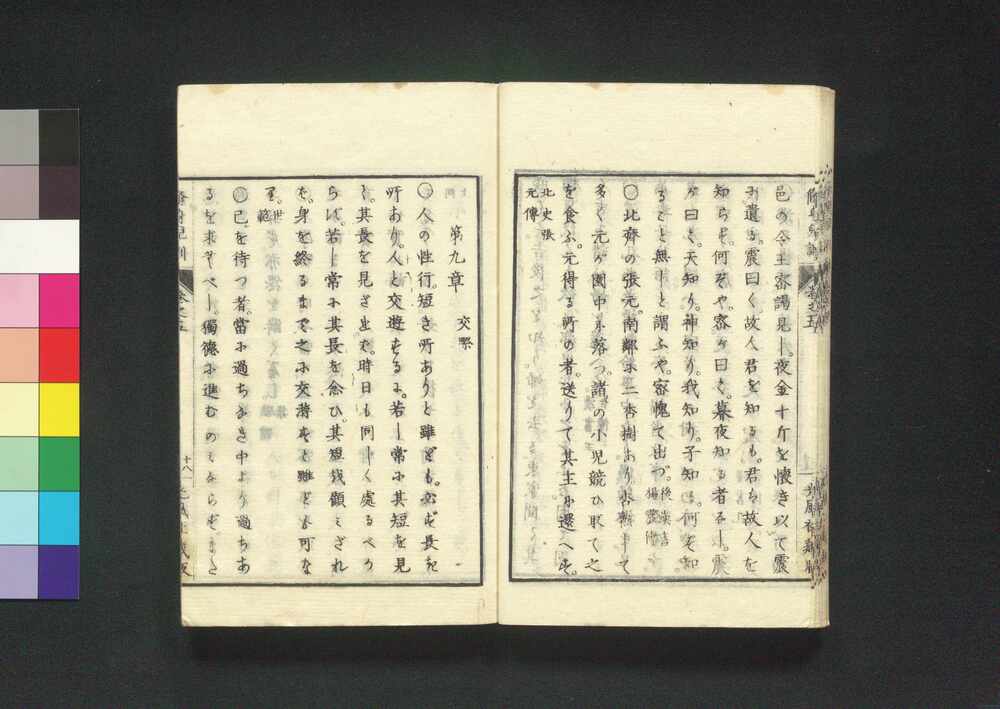 邑の令王密謁見し。夜金十斤を懐き以て震
に遺る。震曰く故人君を知るも。君ハ故人を
知らず。何ぞや。密が曰く。暮夜知る者なし。震
が曰く。天知り。神知り。我知り。子知る。何ぞ知
ること無しと謂ふや。密愧て出づ。後漢書楊震傳
〇北齊の張元。南鄰に二杏樹あり杏熟して
多く元が園中に落つ。諸の小児競ひ取て之
を食ふ。元得る所の者。送りて其主に還へす。
北史張元傳
第九章 交際
〇人の性行。短き所ありと雖ども。必ず長き
所あり。人と交遊するに。若し常に其短を見
て。其長を見ざれば。時日も同しく處るべか
らず。若し常に其長を念ひ。其短を顧ミざれ
ば。身を終るまで之に交游すと雖ども可な
り。世範
〇己を待つ者。當に過ちなき中より過ちあ
るを求むべし。獨徳に進むのミならず。また
十八